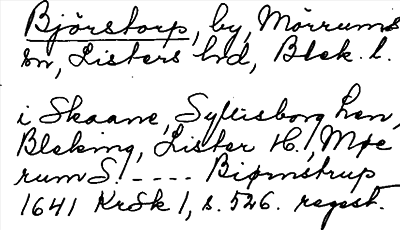 Björstorp, by, Mörrums
sn, Listers hd, Blek. l.
i Skaane, Syluisborg Len,
Bleking, Lister H., Moe
rum S. ---- Biørnstrup
1641 KrSk 1, s. 526. regest.